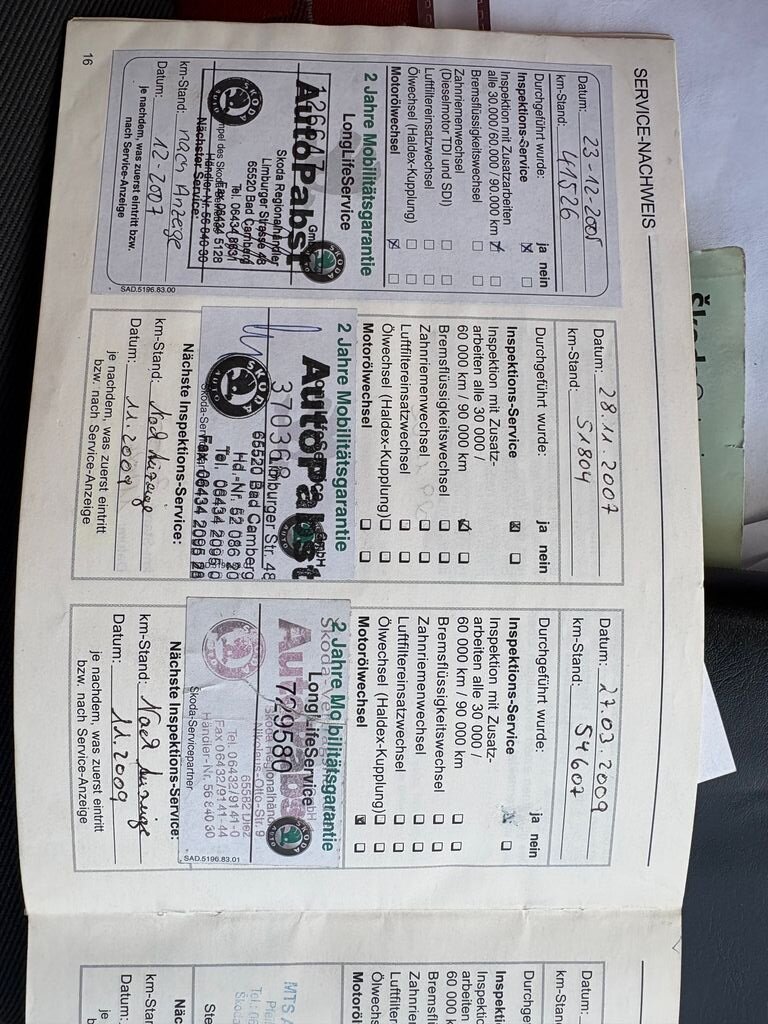 SERVICE-NACHWEIS
Datum: 23-12-2005
km-Stand: 41526
Durchgeführt wurde: ja nein
Inspektions-Service
Inspektion mit Zusatzarbeiten
alle 30.000/60.000/90.000 km
Bremsflüssigkeitswechsel
Zahnriemenwechsel
(Dieselmotor TDI und SDI)
Luftfiltereinsatzwechsel
Ölwechsel (Haldex-Kupplung)
Motorölwechsel
2 Jahre Mobilitätsgarantie
LongLifeService
AutoPabst GmbH
Skoda Regionalhändler
Limburger Strasse 48
65520 Bad Camberg
Tel. 06434
Fax 06434 5128
Händler-Nr. 56 840 30
Nächster Service:
km-Stand: nach Anzeige
Datum: 12-2007
je nachdem, was zuerst eintritt bzw.
nach Service-Anzeige
SAD.5196.83.00
16
Datum: 28.11.2007
km-Stand: 51804
Durchgeführt wurde: ja nein
Inspektions-Service
Inspektion mit Zusatz-
arbeiten alle 30 000 /
60 000 km / 90 000 km
Bremsflüssigkeitswechsel
Zahnriemenwechsel
Luftfiltereinsatzwechsel
Ölwechsel (Haldex-Kupplung)
Motorölwechsel
2 Jahre Mobilitätsgarantie
AutoPabst GmbH
Limburger Str. 48
65520 Bad Camberg
Hd.-Nr. 52 086 20
Tel. 06434 2095 0
Fax. 06434 2095 28
ŠKODA
AUTO
Nächste Inspektions-Service:
km-Stand: Nach Anzeige
Datum: 11.2009
je nachdem, was zuerst eintritt
bzw. nach Service-Anzeige
Datum: 27.03.2009
km-Stand: 54607
Durchgeführt wurde: ja nein
Inspektions-Service
Inspektion mit Zusatz-
arbeiten alle 30 000 /
60 000 km / 90 000 km
Bremsflüssigkeitswechsel
Zahnriemenwechsel
Luftfiltereinsatzwechsel
Ölwechsel (Haldex-Kupplung)
Motorölwechsel
2 Jahre Mobilitätsgarantie
LongLifeService
AutoPabst
729580
Nikolaus-Otto-Str. 9
65582 Diez
Tel. 06432/9141-0
Fax 06432/9141-44
Händler-Nr. 56 840 30
Škoda-Servicepartner
SAD.5196.83.01
Nächste Inspektions-Service:
km-Stand: Nach Anzeige
Datum: 11.2009
je nachdem, was zuerst eintritt
bzw. nach Service-Anzeige
Datum:
km-Stan
Durchge
Inspektio
Inspekti
arbeiten
60 000
Bremsfl
Zahnrie
Luftfilter
Ölwechs
Motoröl
MTS A
Näc
km-St
Datum:
je